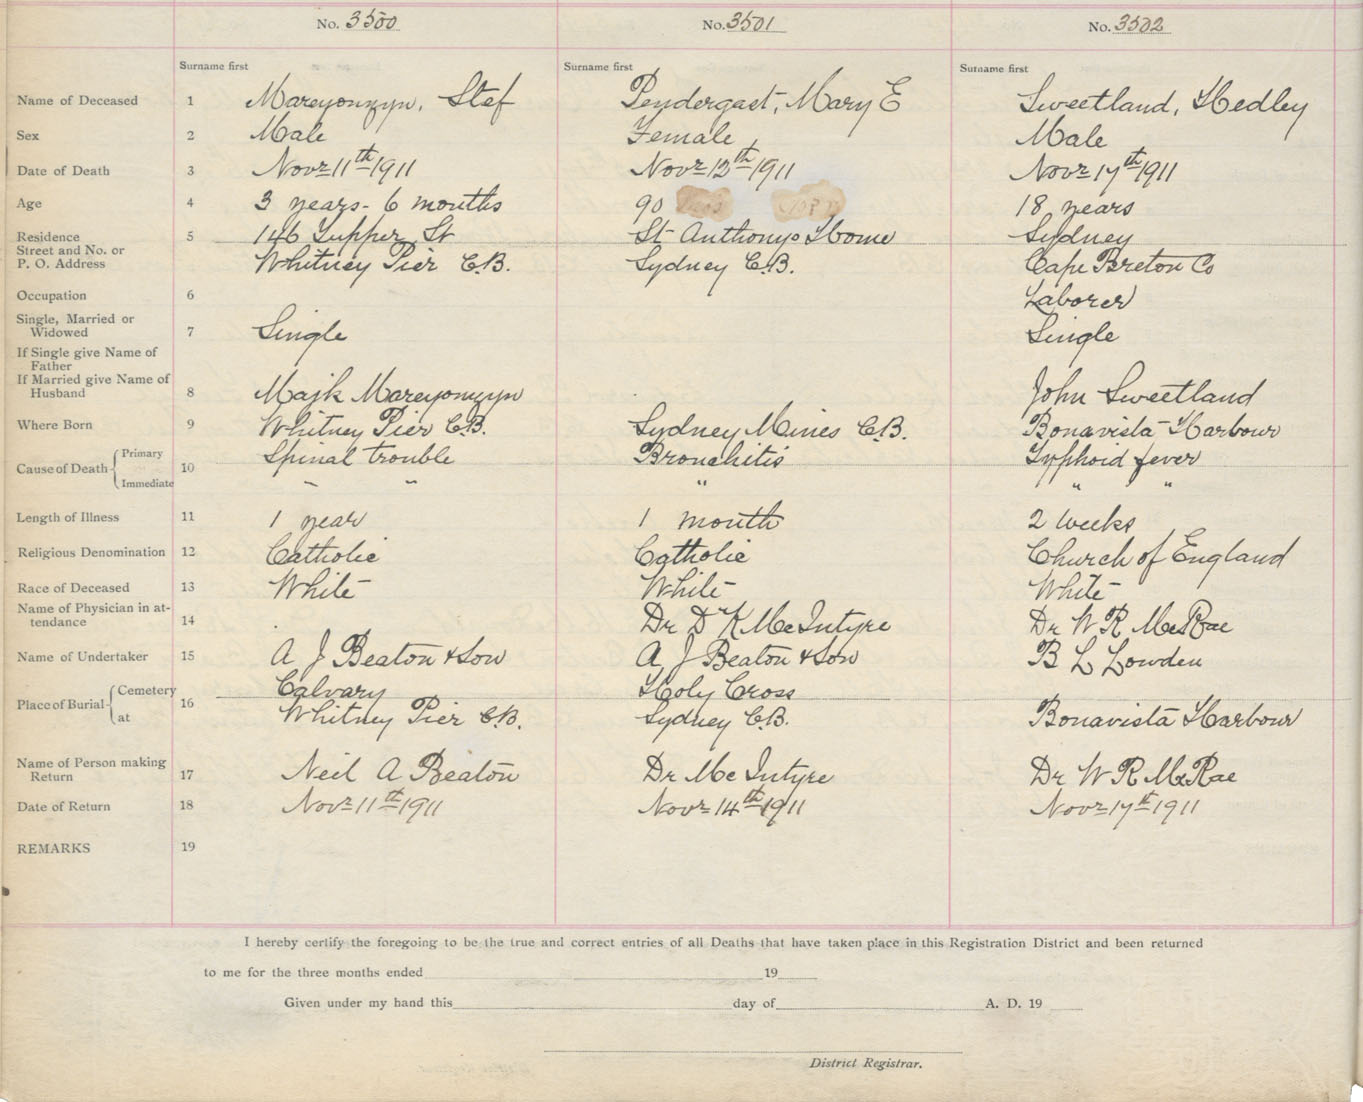 No. 3500 No. 3501 No. 3502
Surname first Surname first Surname first
Name of Deceased 1 Mareyonzyn, Stef Pendergast, Mary E Sweetland, Hedley
Sex 2 Male Female Male
Date of Death 3 Novr 11th 1911 Novr 12th 1911 Novr 17th 1911
Age 4 3 years - 6 months 90 18 years
Residence 5 146 Tupper St St Anthonys Home Sydney
Street and No. or
P. O. Address Whitney Pier C.B. Sydney C.B. Cape Breton Co
Occupation 6 Laborer
Single, Married or
Widowed 7 Single Single
If Single give Name of
Father
If Married give Name of
Husband 8 Majk Mareyonzyn John Sweetland
Where Born 9 Whitney Pier C.B. Sydney Mines C.B. Bonavista Harbour
Cause of Death Primary 10 Spinal trouble Bronchitis Typhoid fever
Immediate " " " " "
Length of Illness 11 1 year 1 month 2 weeks
Religious Denomination 12 Catholic Catholic Church of England
Race of Deceased 13 White White White
Name of Physician in at-
tendance 14 Dr D K McIntyre Dr W R McRae
Name of Undertaker 15 A J Beaton & Son A J Beaton & Son B L Lowden
Place of Burial Cemetery 16 Calvary Holy Cross
at Whitney Pier C.B. Sydney C.B. Bonavista Harbour
Name of Person making
Return 17 Neil A Beaton Dr McIntyre Dr W R McRae
Date of Return 18 Novr 11th 1911 Novr 14th 1911 Novr 17th 1911
REMARKS 19
I hereby certify the foregoing to be the true and correct entries of all Deaths that have taken place in this Registration District and been returned
to me for the three months ended 19
Given under my hand this day of A. D. 19
District Registrar.